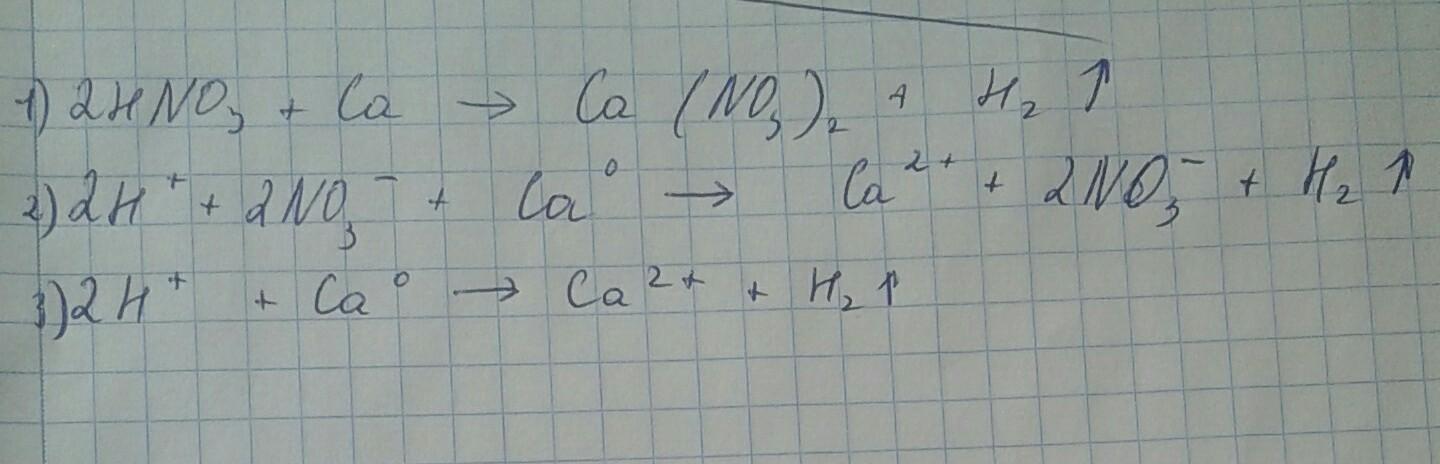 1) 2HNO₃ + Ca → Ca (NO₃)₂ + H₂ ↑
2) 2H⁺ + 2NO₃⁻ + Ca⁰ → Ca²⁺ + 2NO₃⁻ + H₂ ↑
3) 2H⁺ + Ca⁰ → Ca²⁺ + H₂ ↑